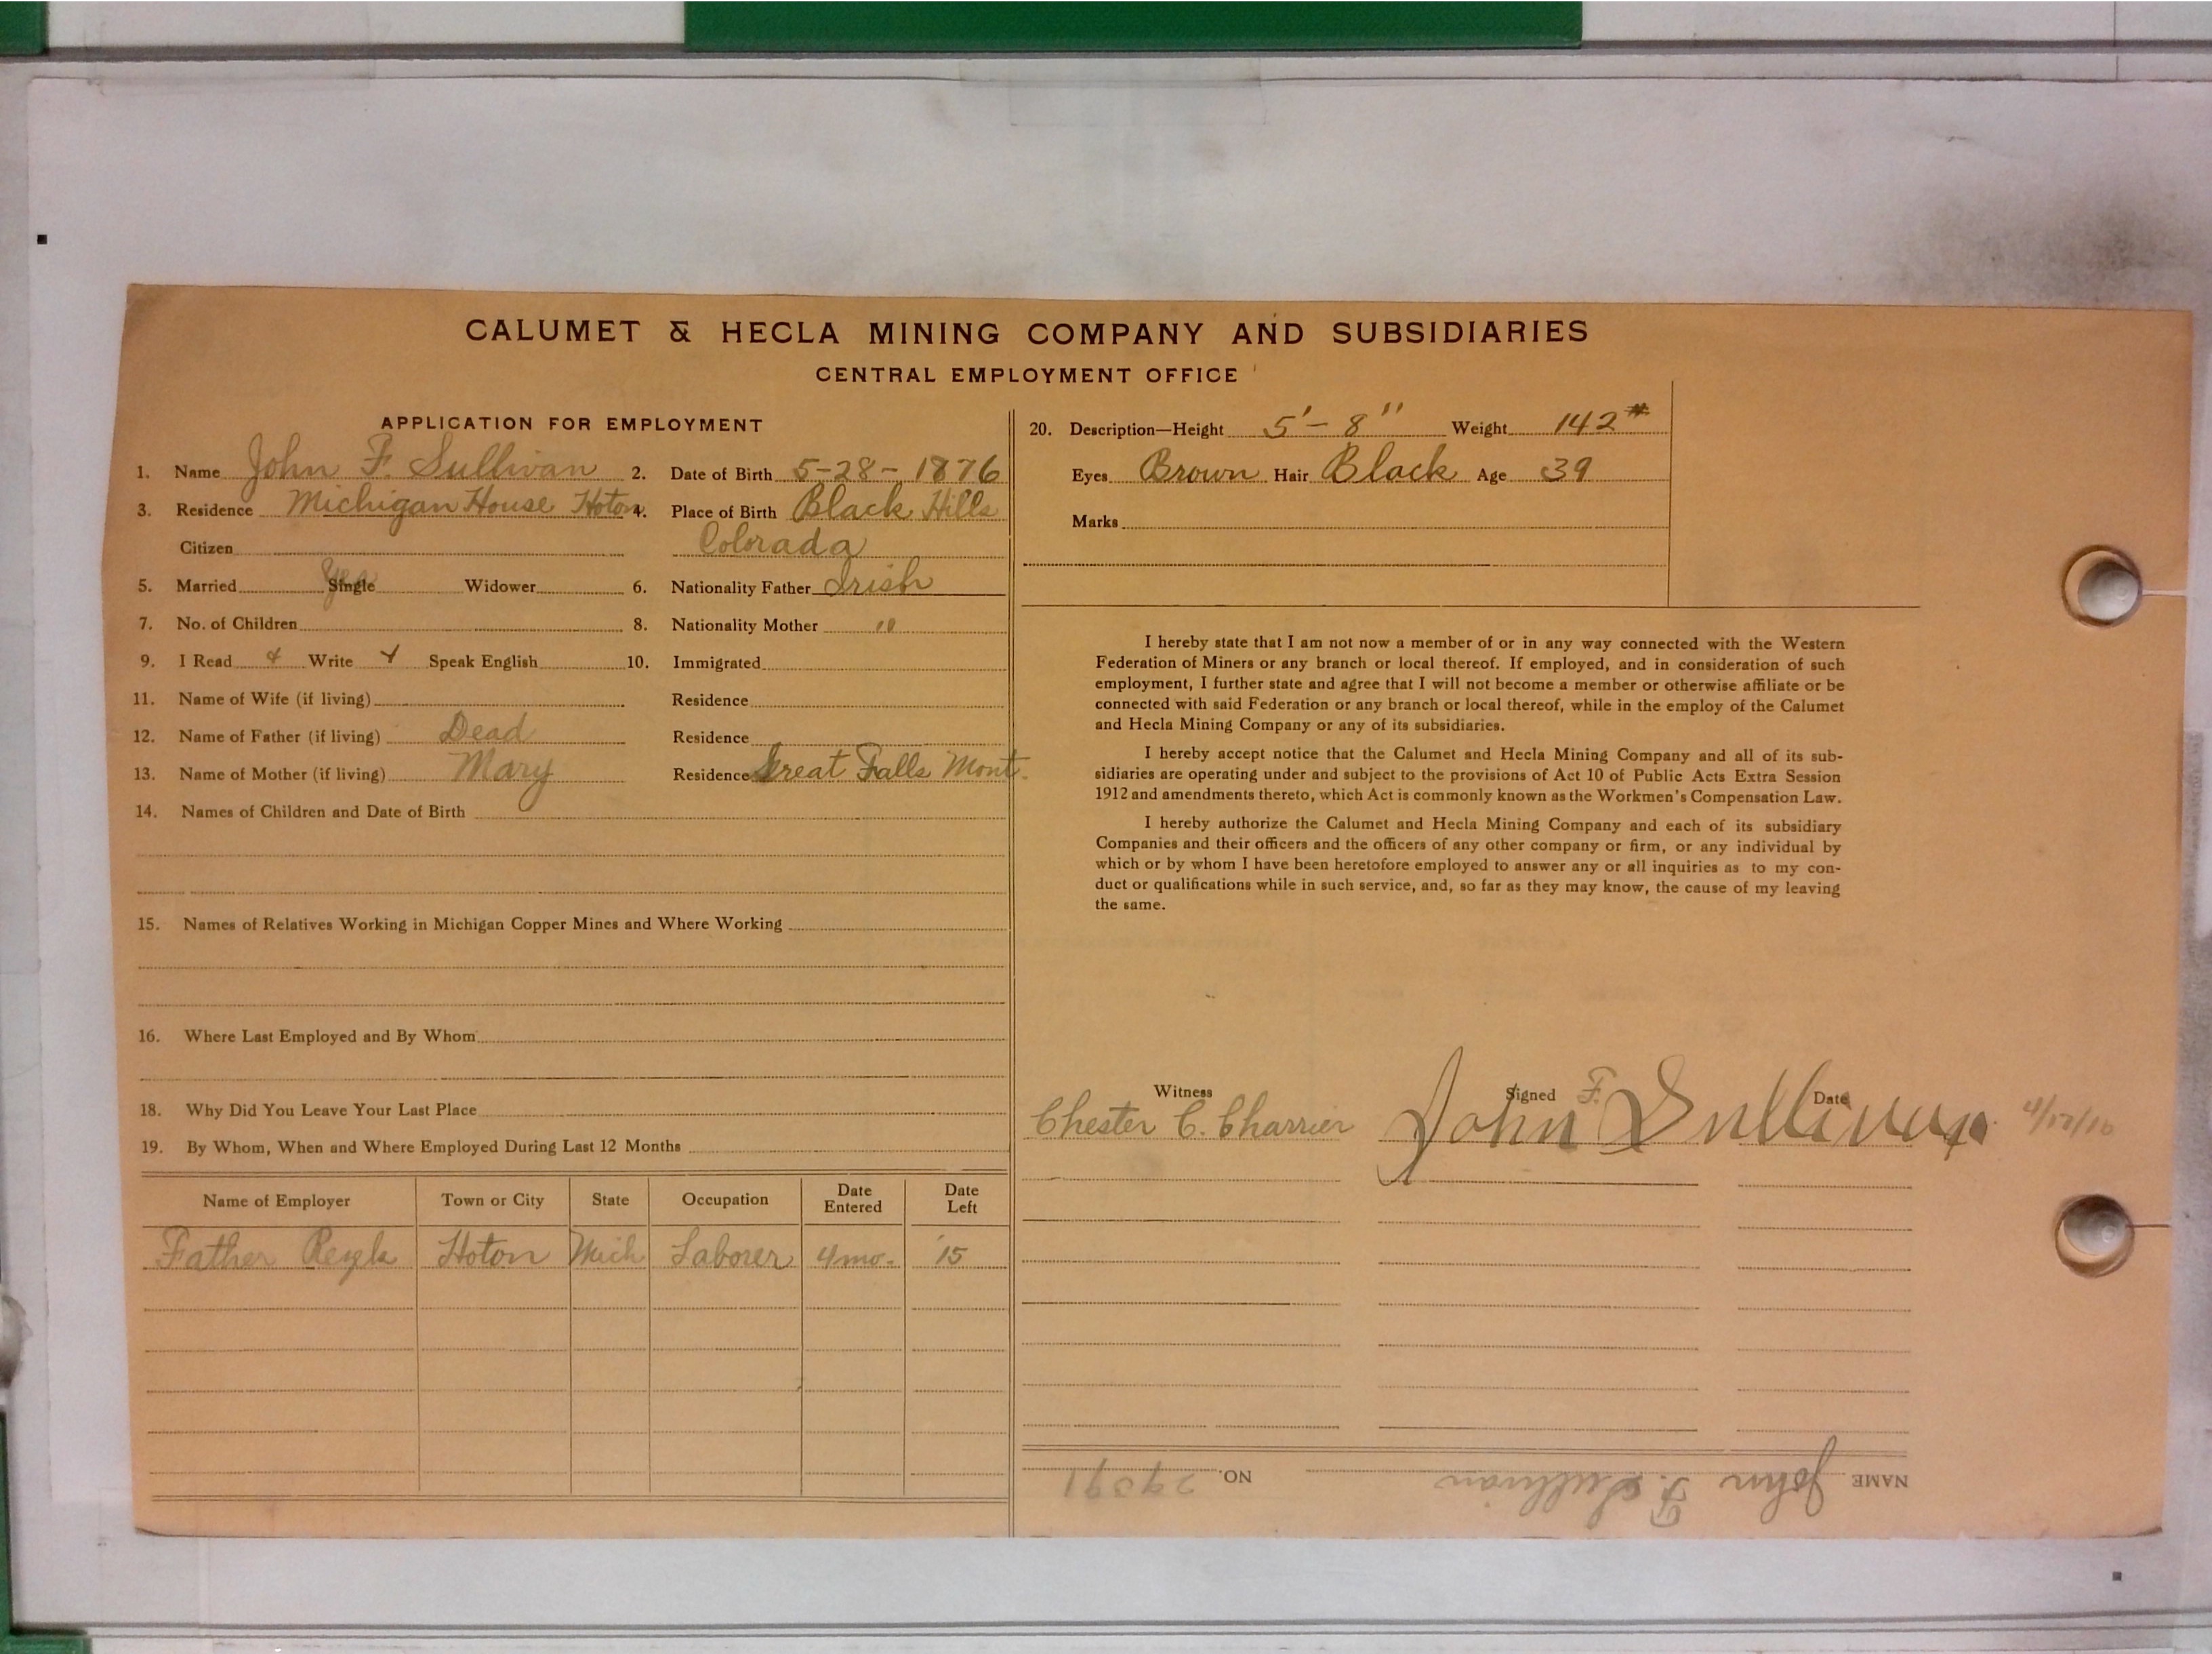 CALUMET & HECLA MINING COMPANY AND SUBSIDIARIES
CENTRAL EMPLOYMENT OFFICE
APPLICATION FOR EMPLOYMENT
1. Name John F. Sullivan 2. Date of Birth 5-28-1876
3. Residence Michigan House Hoton 4. Place of Birth Black Hills
Citizen Colorada
5. Married Single Yes Widower 6. Nationality Father Irish
7. No. of Children 8. Nationality Mother "
9. I Read Write Speak English 10. Immigrated
11. Name of Wife (if living) Residence
12. Name of Father (if living) Dead Residence
13. Name of Mother (if living) Mary Residence Great Falls Mont.
14. Names of Children and Date of Birth
15. Names of Relatives Working in Michigan Copper Mines and Where Working
16. Where Last Employed and By Whom
18. Why Did You Leave Your Last Place
19. By Whom, When and Where Employed During Last 12 Months
Name of Employer Town or City State Occupation Date Entered Date Left
Father Hoton Mich Laborer 4 mo. '15
20. Description—Height 5'-8" Weight 142#
Eyes Brown Hair Black Age 39
Marks
I hereby state that I am not now a member of or in any way connected with the Western
Federation of Miners or any branch or local thereof. If employed, and in consideration of such
employment, I further state and agree that I will not become a member or otherwise affiliate or be
connected with said Federation or any branch or local thereof, while in the employ of the Calumet
and Hecla Mining Company or any of its subsidiaries.
I hereby accept notice that the Calumet and Hecla Mining Company and all of its sub-
sidiaries are operating under and subject to the provisions of Act 10 of Public Acts Extra Session
1912 and amendments thereto, which Act is commonly known as the Workmen's Compensation Law.
I hereby authorize the Calumet and Hecla Mining Company and each of its subsidiary
Companies and their officers and the officers of any other company or firm, or any individual by
which or by whom I have been heretofore employed to answer any or all inquiries as to my con-
duct or qualifications while in such service, and, so far as they may know, the cause of my leaving
the same.
Witness Signed Date
Chester C. Charrier John F. Sullivan
NAME John F. Sullivan NO.